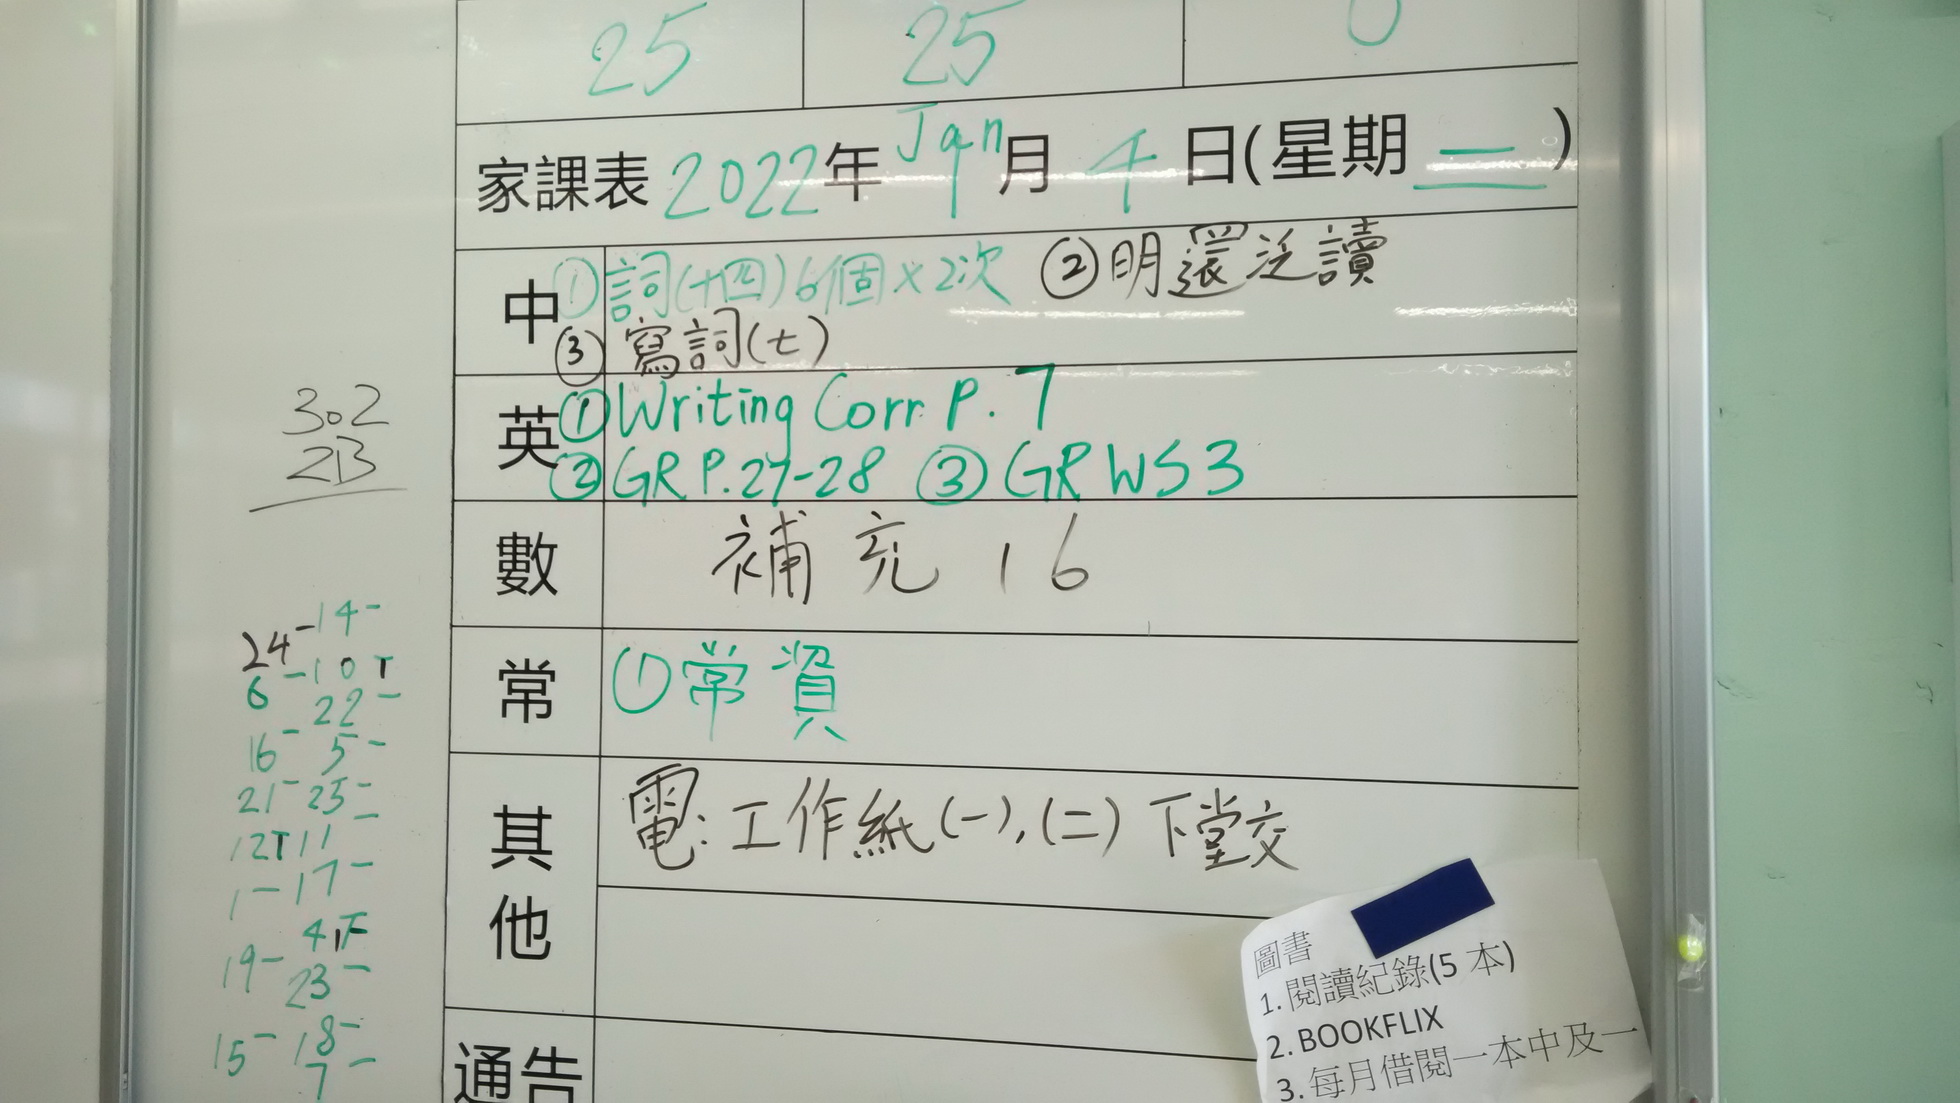 25 25 0
家課表 2022年 Jan 月 4 日(星期 二 )
中 ①詞(十四)6個×2次 ②明還泛讀
③ 寫詞(七)
英 ①Writing Corr P. 7
②GR P.27-28 ③ GR WS3
數 補充 16
常 ①常資
其他 電: 工作紙(一),(二) 下堂交
通告
302
2B
14-
24-
6 -10 T
22 -
16 - 5 -
21 - 25 -
12T 11 -
1 - 17 -
4 正
19 - 23 -
15 - 18 -
7 -
圖書
1. 閱讀紀錄(5 本)
2. BOOKFLIX
3. 每月借閱一本中及一